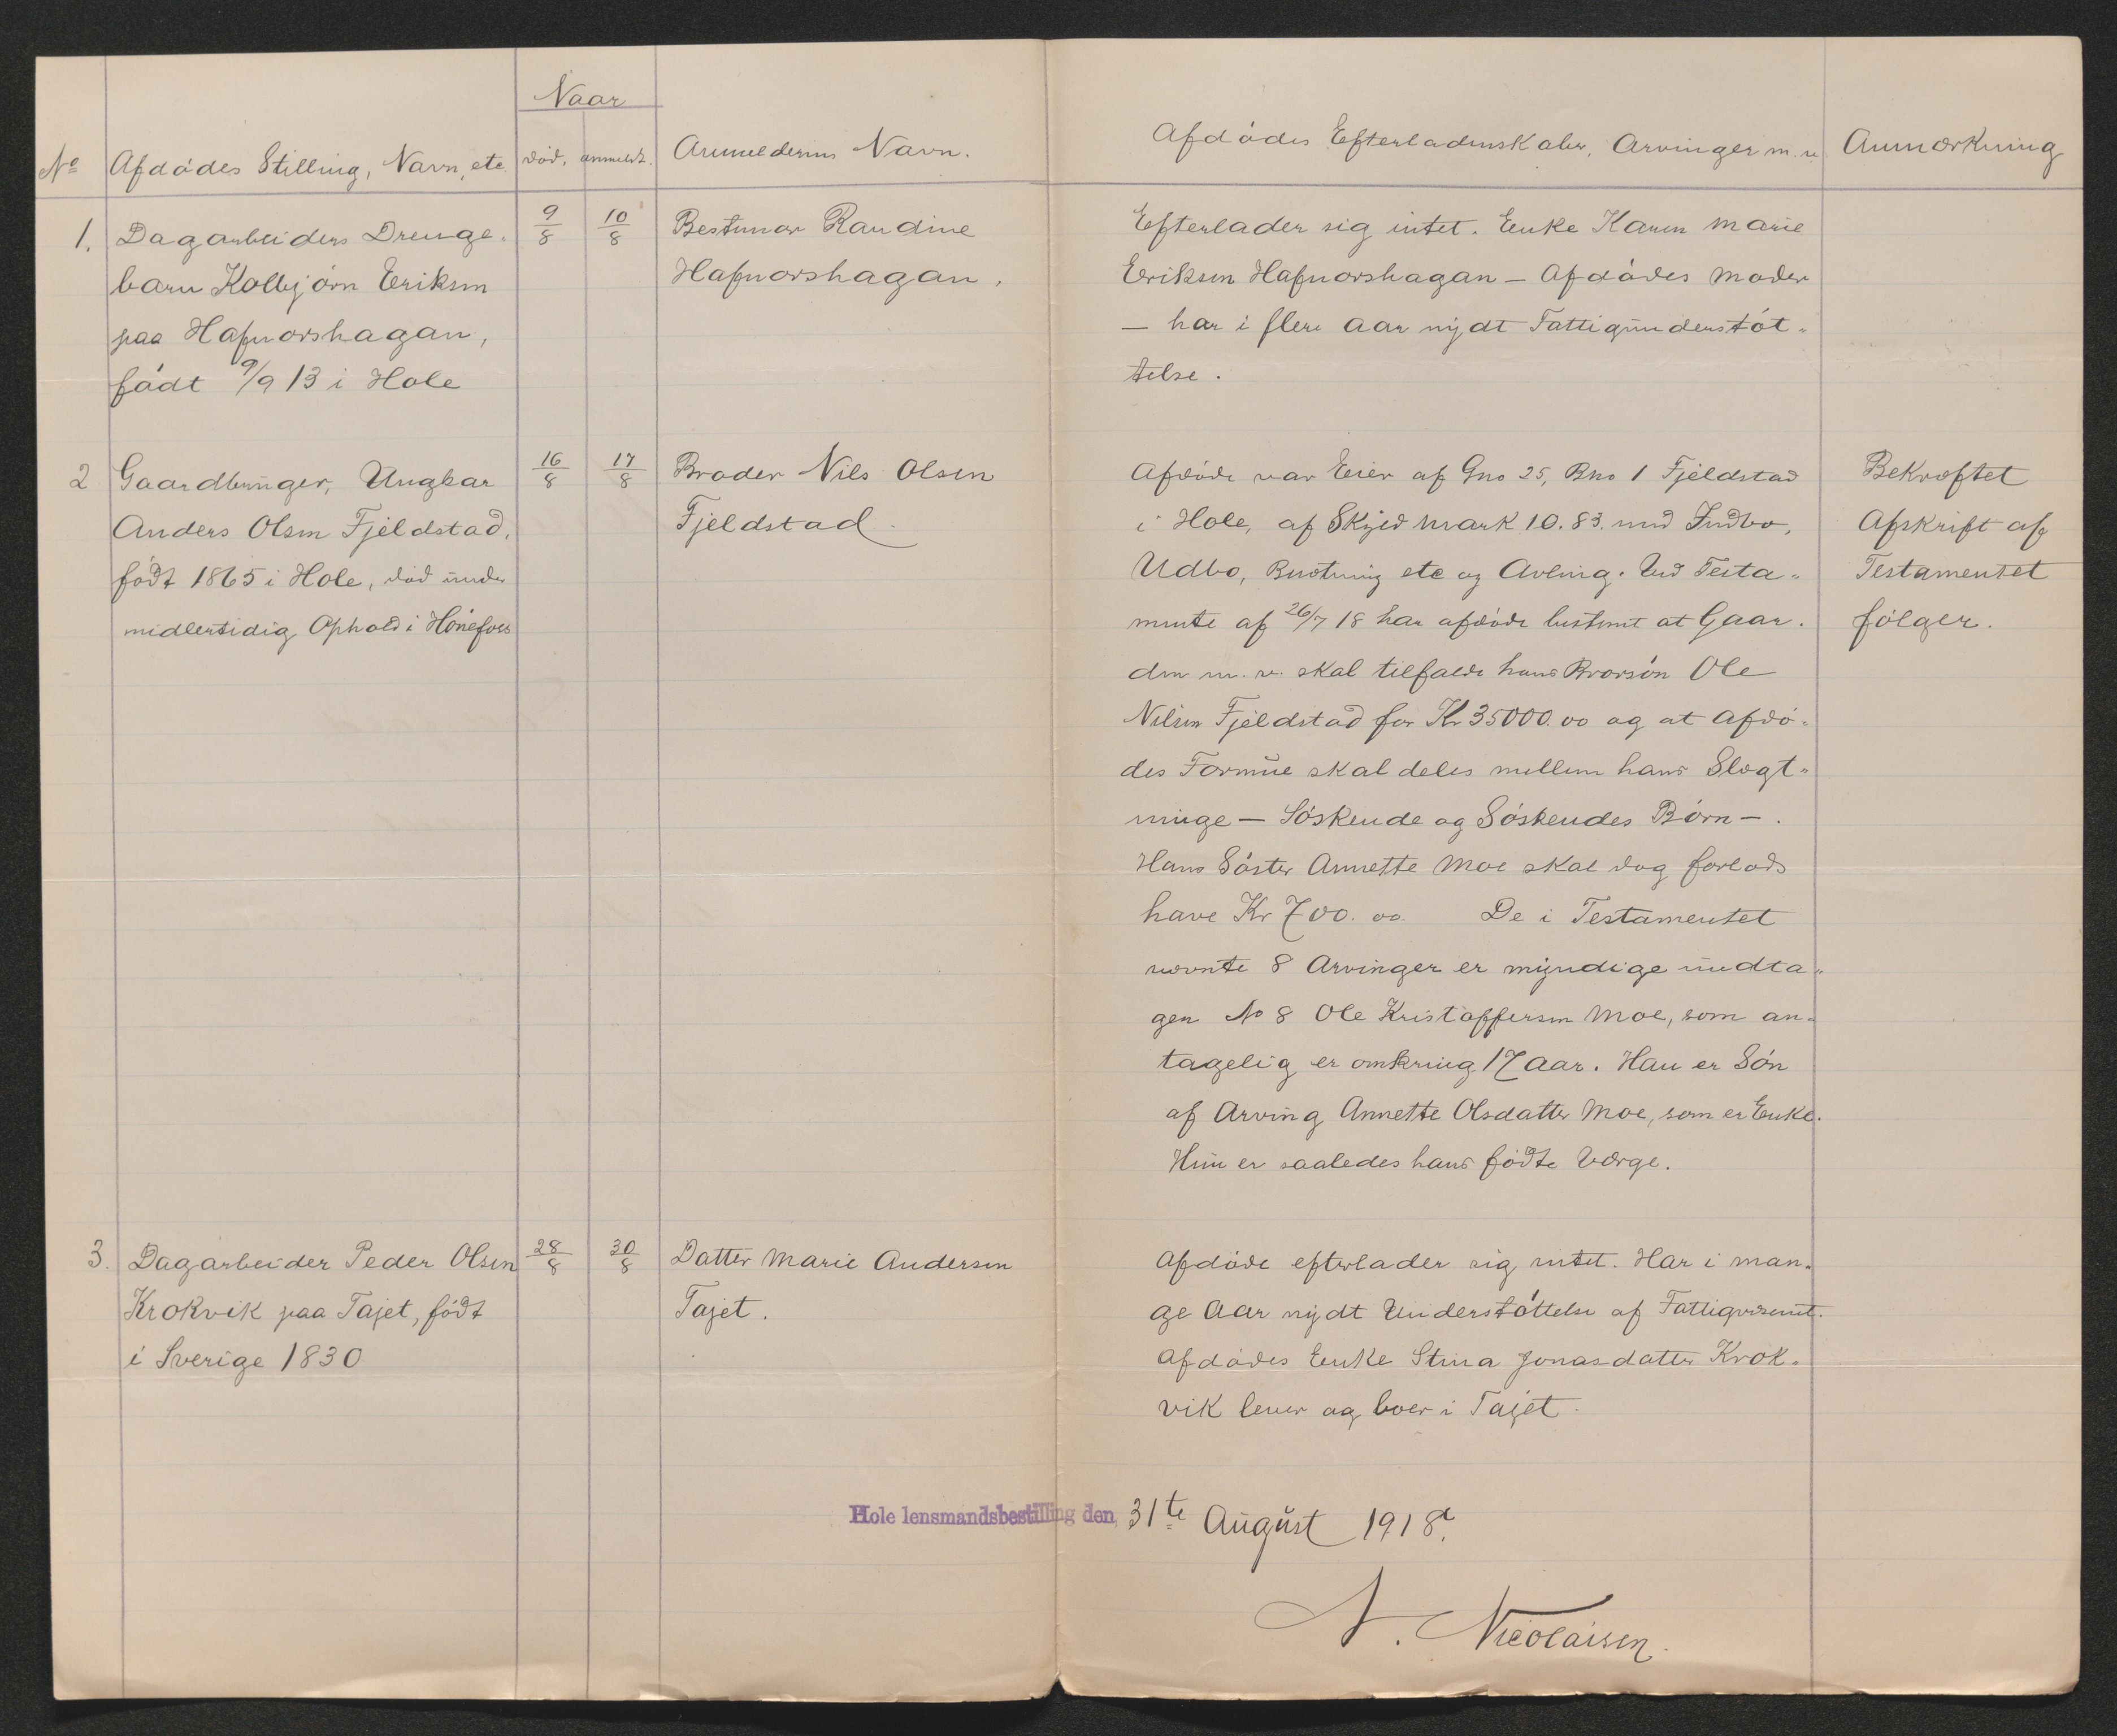 Naar
No Afdödes Stilling, Navn, etc. död, anmeldt. Anmelderens Navn. Afdödes Efterladenskaber, Arvinger m. v. Anmærkning
1. Dagarbeiders Drenge-
barn Kolbjörn Eriksen
paa Hafnorshagan,
födt 9/9 13 i Hole
9/8 10/8
Bestemor Randine
Hafnorshagan.
Efterlader sig intet. Enke Karen Marie
Eriksen Hafnorshagan – Afdödes Moder
– har i flere Aar nydt Fattigunderstöt-
telse.
2 Gaardbruger, Ungkar
Anders Olsen Fjeldstad,
födt 1865 i Hole, död under
midlertidig Ophold i Hönefoss
16/8 17/8
Broder Nils Olsen
Fjeldstad.
Afdöde var Eier af Gno 25, Bno 1 Fjeldstad
i Hole, af Skyld Mark 10.83. med Indbo,
Udbo, Besætning etc og Avling. Ved Testa-
mente af 26/7 18 har afdöde bestemt at Gaar-
den m. v. skal tilfalde hans Brorsön Ole
Nilsen Fjeldstad for Kr 35000.00 og at Afdö-
des Formue skal deles mellem hans Slægt-
ninge – Söskende og Söskendes Börn –.
Hans Söster Annette Moe skal dog forlods
have Kr 700.00. De i Testamentet
nævnte 8 Arvinger er myndige undta-
gen No 8 Ole Kristoffersen Moe, som an-
tagelig er omkring 17 Aar. Han er Sön
af Arving Annette Olsdatter Moe, som er Enke.
Hun er saaledes hans födte Værge.
Bekræftet
Afskrift af
Testamentet
fölger.
3. Dagarbeider Peder Olsen
Krokvik paa Tajet, födt
i Sverige 1830
28/8 30/8
Datter Marie Andersen
Tajet.
Afdöde efterlader sig intet. Har i man-
ge Aar nydt Understöttelse af Fattigvæsenet.
Afdödes Enke Stina Jonasdatter Krok-
vik lever og boer i Tajet.
Hole lensmandsbestilling den 31te August 1918.
N. Nicolaisen.